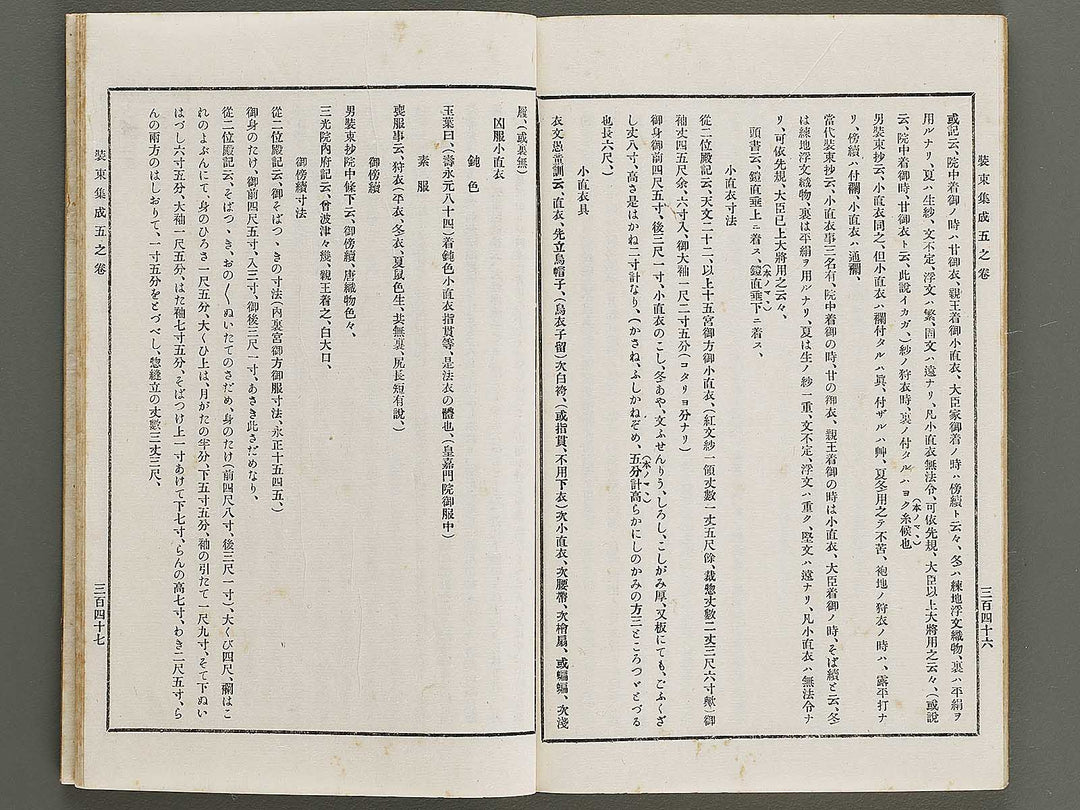 装束集成五之卷
三百四十六
或記云、院中着御ノ時ハ甘御衣、親王着御小直衣、大臣家御着ノ時ハ傍續ト云々、冬ハ練地浮文織物、裏ハ平絹ヲ
用ルナリ、夏ハ生紗、文不定、浮文ハ繁、固文ハ遠ナリ、凡小直衣無法令、可依先規、大臣以上大將用之云々、(或說
云、院中着御時甘御衣ト云、此說イカガ、)紗ノ狩衣時、裏ノ付タルハヨク糸候也(本ノマヽ)
男裝束抄云、小直衣同之、但小直衣ハ襴付タルハ眞、付ザルハ艸、夏冬用之テ不苦、袍地ノ狩衣ノ時ハ、露平打ナ
リ、傍續ハ付襴、小直衣ハ通襴、
當代裝束抄云、小直衣事三名有、院中着御の時、甘の御衣、親王着御の時は小直衣、大臣着御ノ時、そば續と云、冬
は練地浮文織物、裏は平絹ヲ用ルナリ、夏は生ノ紗一重、文不定、浮文ハ重ク、堅文ハ遠ナリ、凡小直衣ハ無法令ナ
リ、可依先規、大臣已上大將用之云々、
頭書云、鎧直垂上ニ着ス、鎧直垂下ニ着ス、(本ノマヽ)
小直衣寸法
從二位殿記云、天文二十二、以上十五宮御方御小直衣、(紅文紗一領丈數一丈五尺餘、裁惣丈數二丈三尺六寸歟)御
袖丈四五尺余、六寸入、御大袖一尺二寸五分(コタリヨ分ナリ)
御身御前四尺五寸、後三尺一寸、小直衣のこし、冬あや、文ふせんりう、しろし、こしがみ厚、又板にても、ごふくざ
し丈八寸、高さ是はかね二寸計なり、(かさね、ふしかねぞめ、五分計高らかにしのかみの方三ところつゝとづる(本ノマヽ)
也長六尺、)
小直衣具
衣文愚童訓云、直衣、先立烏帽子、(烏衣子留)次白袴、(或指貫、不用下衣)次小直衣、次腰帶、次檜扇、或蝙蝠、次淺
履、(或裏無)
凶服小直衣
鈍色
玉葉曰、(壽永元八十四)着鈍色小直衣指貫等、是法衣の體也、(皇嘉門院御服中)
素服
喪服事云、狩衣(平衣、冬衣、夏鼠色生、共無裏、尻長短有說、)
男裝束抄院中條下云、御傍續、唐織物色々、
御傍續
三光院內府記云、曾波津々幾、親王着之、白大口、
御傍續寸法
從二位殿記云、御そばつゝきの寸法(內裏宮御方御服寸法、永正十五四五、)
御身のたけ、御前四尺五寸、入三寸、御後三尺一寸、あさき此さだめなり、
從二位殿記云、そばつゝき、おの〱ぬいたてのさだめ、身のたけ(前四尺八寸、後三尺一寸)、大くび四尺、襴はこ
れのよぶんにて、身のひろさ一尺五分、大くひ上は、月がたの半分、下五寸五分、袖の引たて一尺九寸、そて下ぬい
はづし六寸五分、大袖一尺五分、はた袖七寸五分、そばつけ上一寸あけて下七寸、らんの高七寸、わき二尺五寸、ら
んの兩方のはしおりて、一寸五分をとづべし、惣縫立の丈數三丈三尺、
装束集成五之卷
三百四十七